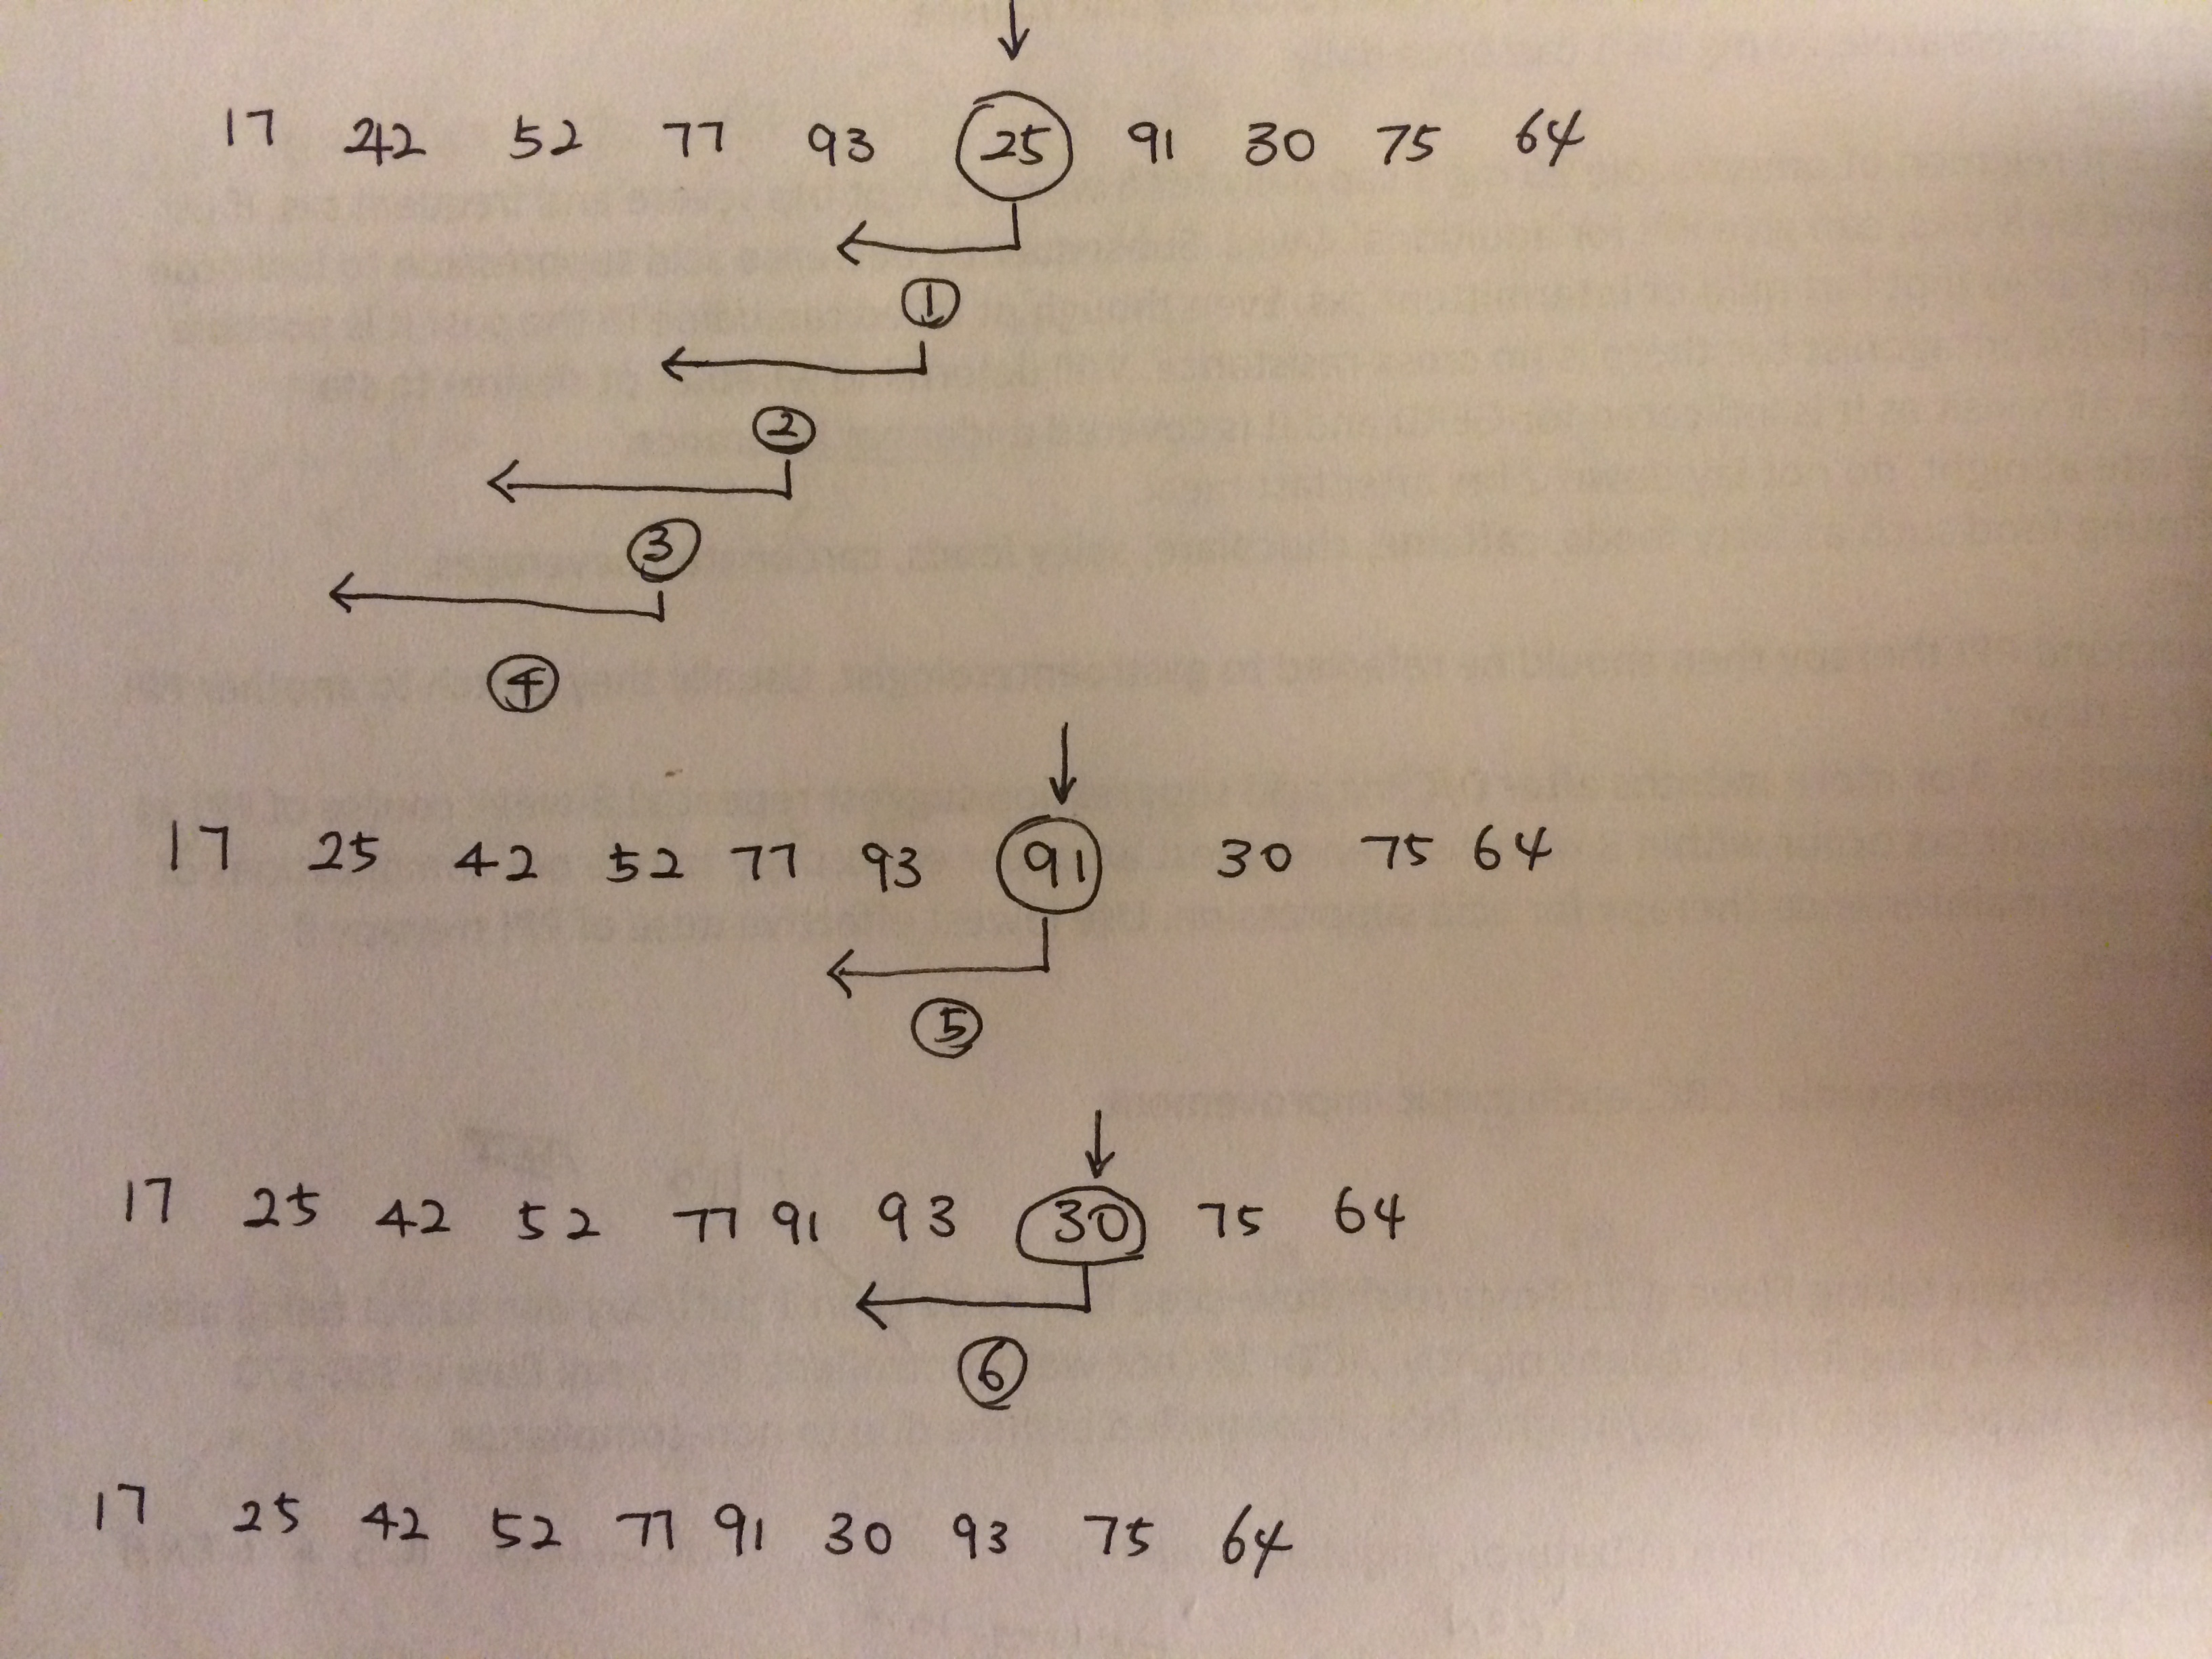 17 42 52 77 93 25 91 30 75 64
1
2
3
4
17 25 42 52 77 93 91 30 75 64
5
17 25 42 52 77 91 93 30 75 64
6
17 25 42 52 77 91 30 93 75 64